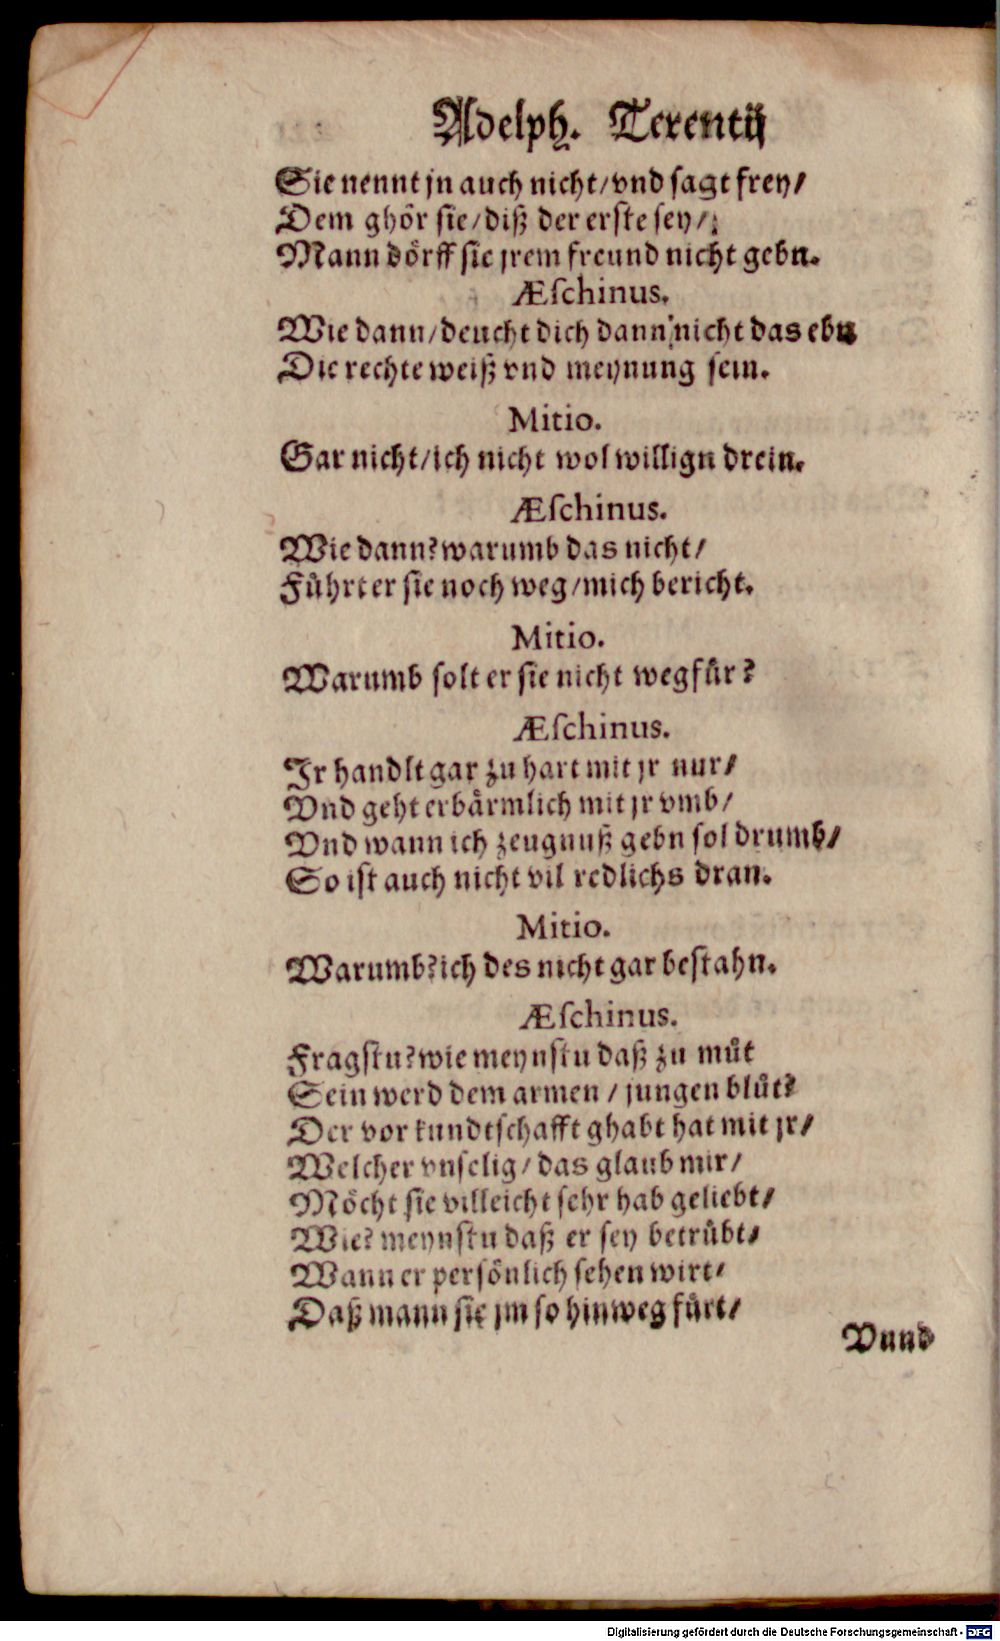 Adelph. Terentij
Sie nennt jn auch nicht/vnd sagt frey/
Dem ghör sie/diß der erste sey/
Mann dörff sie jrem freund nicht gebn.
Æſchinus.
Wie dann/deucht dich dann nicht das ebn
Die rechte weiß vnd meynung sein.
Mitio.
Gar nicht/ich nicht wol willign drein.
Æſchinus.
Wie dann?warumb das nicht/
Führt er sie noch weg/mich bericht.
Mitio.
Warumb solt er sie nicht wegfür?
Æſchinus.
Jr handlt gar zu hart mit jr nur/
Vnd geht erbärmlich mit jr vmb/
Vnd wann ich zeugnuß gebn sol drumb/
So ist auch nicht vil redlichs dran.
Mitio.
Warumb?ich des nicht gar bestahn.
Æſchinus.
Fragstu?wie meynstu daß zu můt
Sein werd dem armen / jungen blůt?
Der vor kundtschafft ghabt hat mit jr/
Welcher vnselig/das glaub mir/
Möcht sie villeicht sehr hab geliebt/
Wie? meynstu daß er sey betrübt/
Wann er persönlich sehen wirt/
Daß mann sie jm so hinweg fürt/
Vnnd
Digitalisierung gefördert durch die Deutsche Forschungsgemeinschaft - DFG